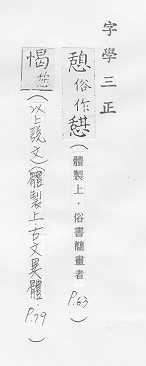 字學三正
憩俗作憇(體製上·俗書簡畫者 P.63)
愒(以上說文)(體製上·古文異體·P.79)